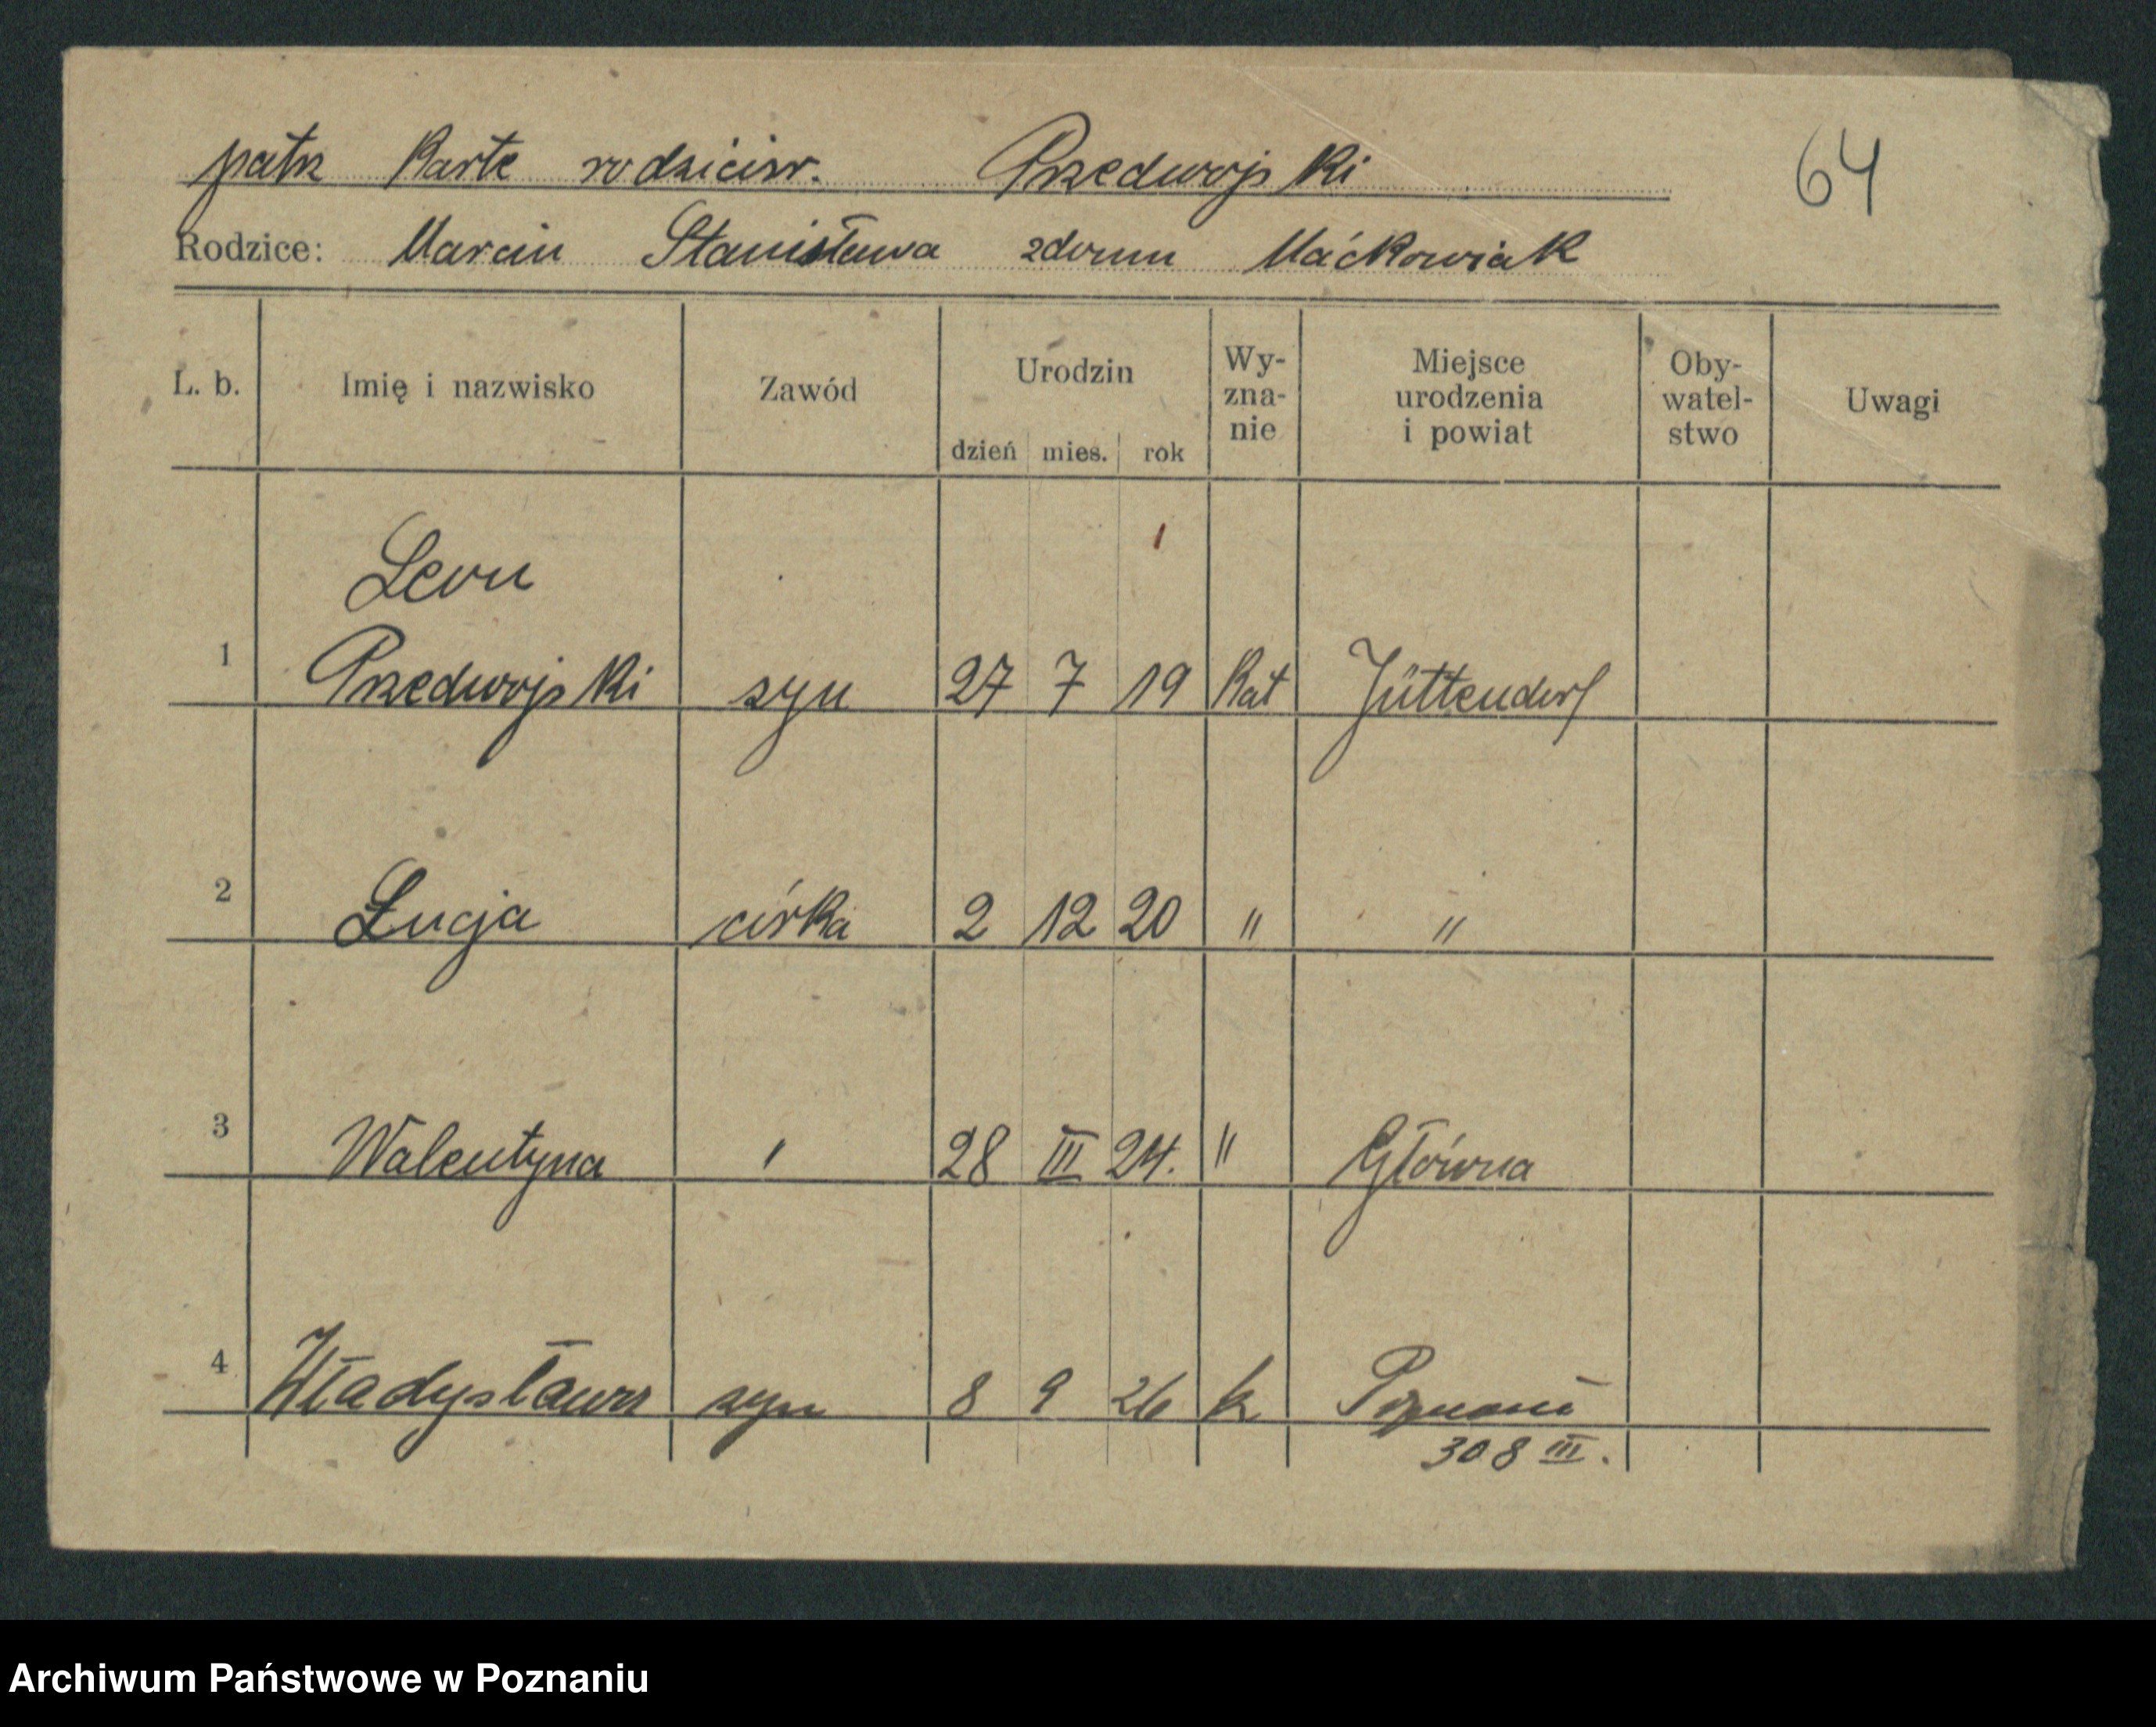 patrz Kartę rodziców. Przedwojski 64
Rodzice: Marcin Stanisława zdomu Maćkowiak
L. b. Imię i nazwisko Zawód Urodzin dzień mies. rok Wy-zna-nie Miejsce urodzenia i powiat Oby-watel-stwo Uwagi
Leon
1 Przedwojski syn 27 7 19 Kat Jüttendorf
2 Łucja córka 2 12 20 " "
3 Walentyna " 28 III 24. " Główna
4 Władysława syn 8 9 26 k Poznań
308 III.
Archiwum Państwowe w Poznaniu